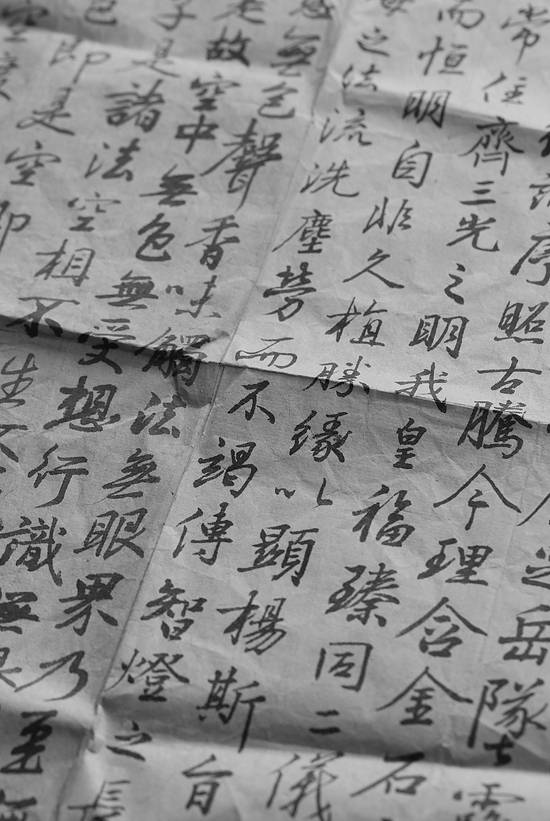 岳墜露
序照古騰今理含金石
常住齊三光之明我皇福臻同二儀
而恒明自非久植勝緣以顯揚斯旨
之法流洗塵勞而不竭傳智燈之長
無色聲香味觸法無眼界乃至無
故空中無色無受想行識無
子是諸法空相不生
色即是空即